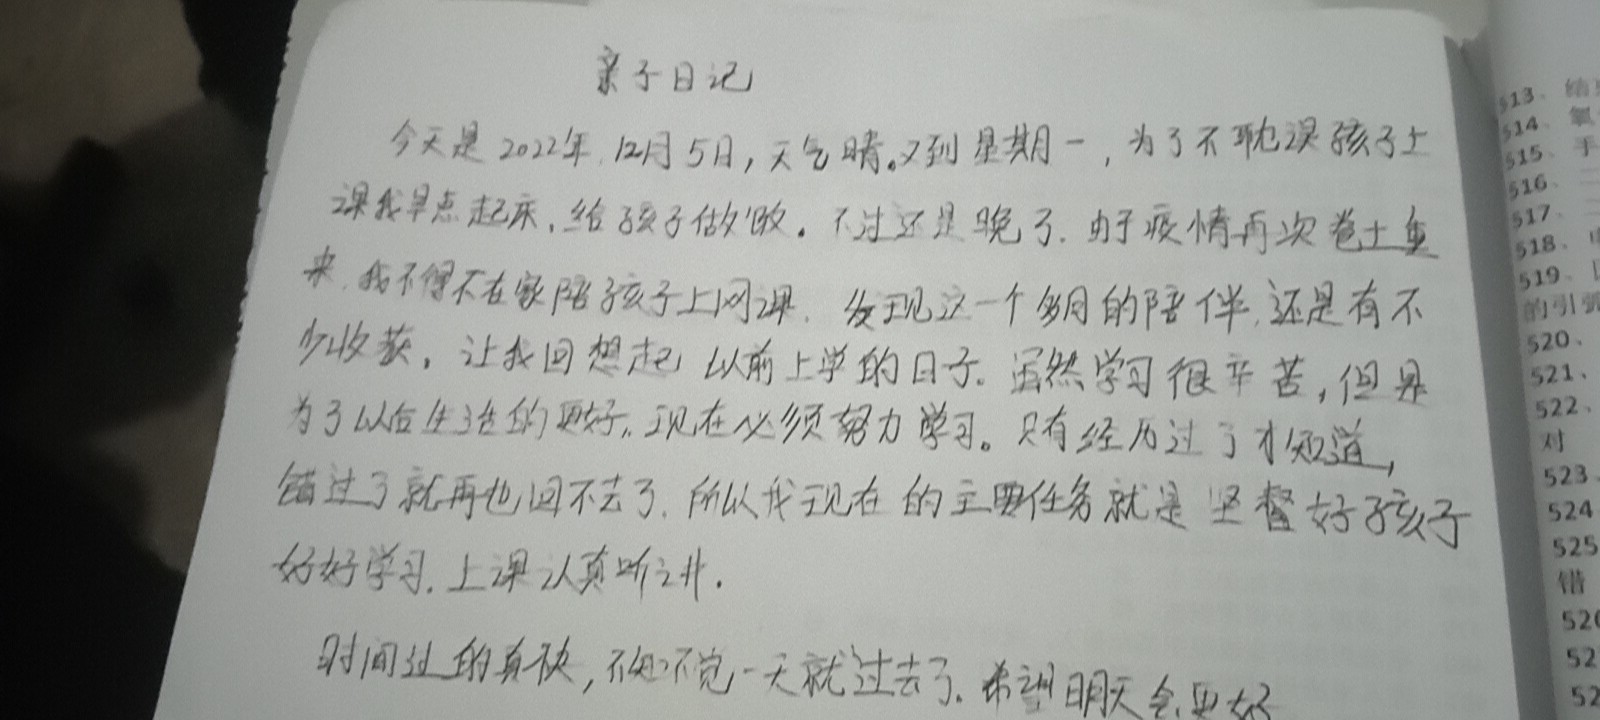 亲子日记
今天是2022年.12月5日,天气晴。又到星期一,为了不耽误孩子上
课我早点起床,给孩子做饭。不过还是晚了.由于疫情再次卷土重
来.我不得不在家陪孩子上网课.发现这一个多月的陪伴.还是有不
少收获,让我回想起以前上学的日子。虽然学习很辛苦,但是
为了以后生活的更好,现在必须努力学习。只有经历过了才知道,
错过了就再也回不去了.所以我现在的主要任务就是坚督好孩子
好好学习.上课认真听讲.
时间过的真快,不知不觉一天就过去了.希望明天会更好
513、结
514、氧
515、手
516、二
517、
518、
519、
的引弧
520、
521、
522、
对
523、
524
525
错